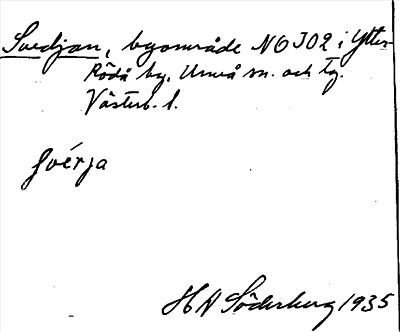 Svedjan, byområde NO JO2 i Ytter-
Rödå by, Umeå sn. och tg.
Västerb. l.
HN Söderberg 1935